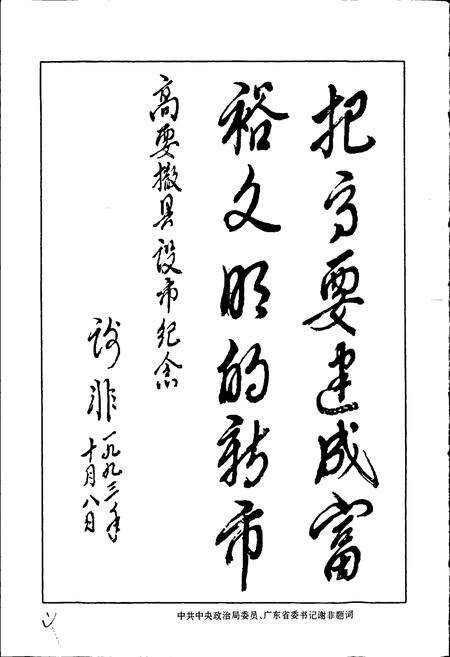 把高要建成富
裕文明的新市
高要撤县设市纪念
谢非
一九九三年
十月八日
中共中央政治局委员、广东省委书记谢非题词